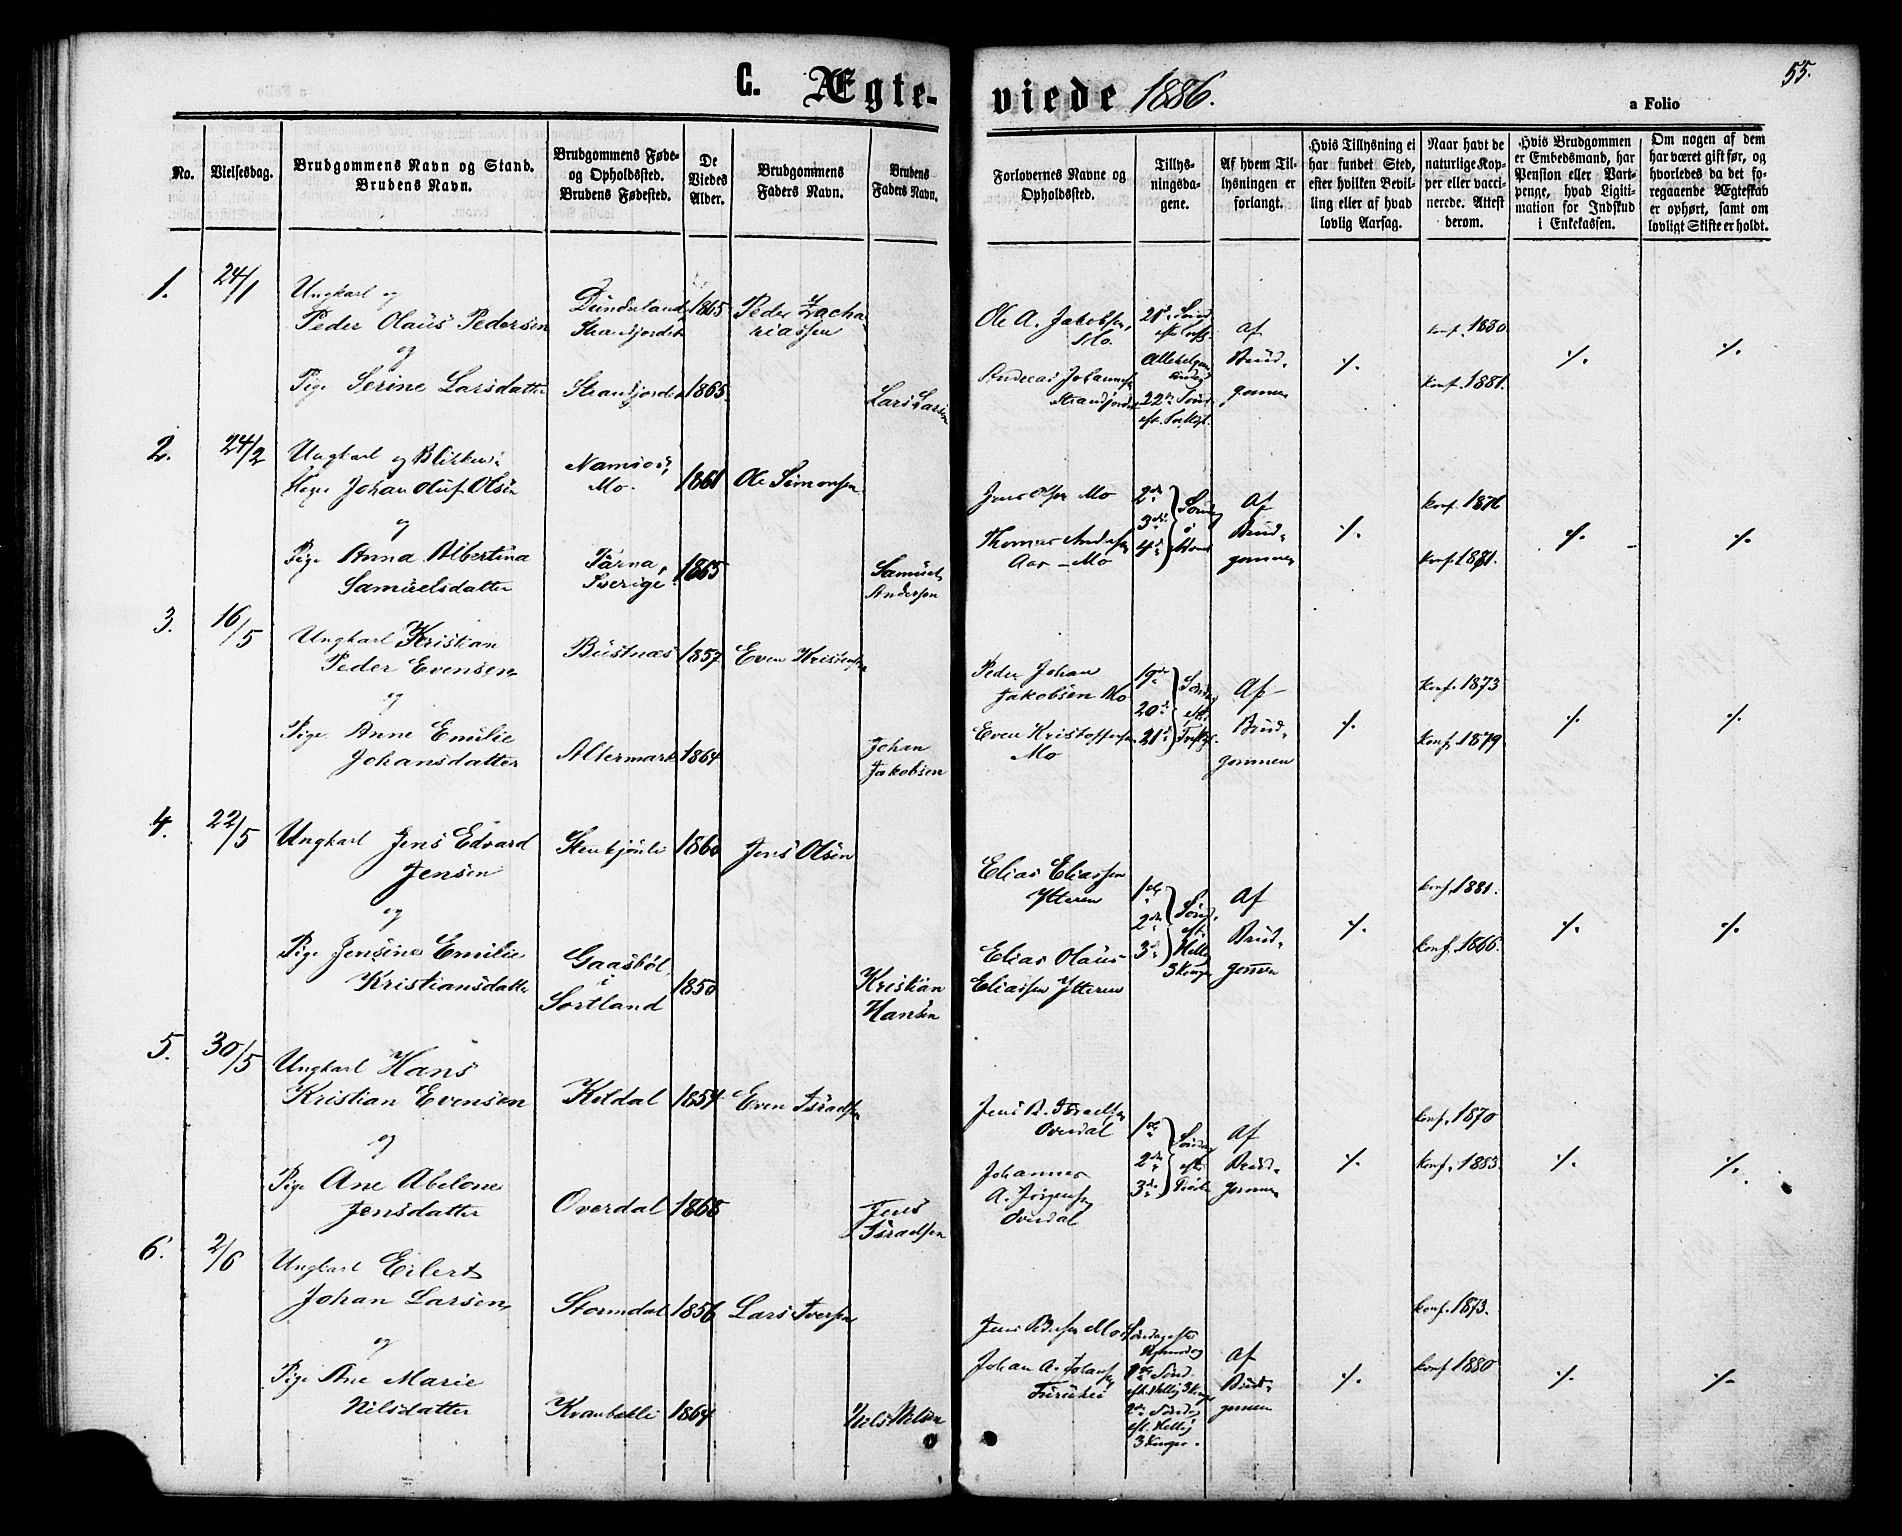 C. Ægte-
viede 1886.
55.
a Folio
No.
Vielsesdag.
Brudgommens Navn og Stand.
Brudens Navn.
Brudgommens Føde-
og Opholdssted.
Brudens Fødested.
De
Viedes
Alder.
Brudgommens
Faders Navn.
Brudens
Faders Navn.
Forlovernes Navne og
Opholdssted.
Tillys-
ningsda-
gene.
Af hvem Til-
lysningen er
forlangt.
Hvis Tillysning ei
har fundet Sted,
efter hvilken Bevil-
ling eller af hvad
lovlig Aarsag.
Naar havt de
naturlige Kop-
per eller vacci-
nerede. Attest
derom.
Hvis Brudgommen
er Embedsmand, har
Pension eller Vart-
penge, hvad Ligiti-
mation for Indskud
i Enkekassen.
Om nogen af dem
har været gift før, og
hvorledes da det fo-
regaaende Ægteskab
er ophørt, samt om
lovligt Skifte er holdt.
1.
24/1
Ungkarl og
Peder Olaus Pedersen
og
Pige Serine Larsdatter
Dunderland
Strandjordet
Strandjordet
1865
1865.
Peder Zacha-
riassen
Lars Larsen
Ole A. Jakobsen,
Mo.
Andreas Johannesen
Strandjordet
21de Sønd.
eft. Trefgt.
Allehelgens
Søndag
22de Sønd.
eft. Trefgt.
af
Brud-
gommen
./.
Konf. 1880.
Konf. 1881.
./.
./.
2.
24/2
Ungkarl og
Johan Oluf Olsen
og
Pige Anna Albertina
Samuelsdatter
Namsos,
Mo.
Tärna,
Sverige.
1861
1865
Ole Simonsen
Samuel
Andersen
Jens Olsen Mo
Thomas Andersen
Aas - Mo
2den
3die
4de
Sønd.
Af
Brud-
gommen
./.
Konf. 1876
Konf. 1881.
./.
./.
3.
16/5
Ungkarl Kristian
Peder Evensen
og
Pige Anne Emilie
Johansdatter
Bustnæs
Altermark
1857
1864
Even Kristensen
Johan
Jakobsen
Peder Johan
Jakobsen Mo
Even Kristoffersen
Mo
19de
20de
21de
Sønd.
eft.
Trefgt.
Af
Brud-
gommen
./.
Konf. 1873
Konf. 1879
./.
./.
4.
22/5
Ungkarl Jens Edvard
Jensen
og
Pige Jensine Emilie
Kristiansdatter
Stenkjønli
Gaasbøl
i
Sortland
1860
1850
Jens Olsen
Kristian
Hansen
Elias Eliassen
Ytteren
Elias Olaus
Eliassen Ytteren
1ste
2den
3die
Sønd.
eft.
Hellig
3 Konger
Af
Brud-
gommen
./.
Konf. 1881.
Konf. 1866.
./.
./.
5.
30/5
Ungkarl Hans
Kristian Evensen
og
Pige Ane Abelone
Jensdatter
Koldal
Overdal
1854
1868
Even Israelsen
Jens
Israelsen
Jens B. Israelsen
Overdal
Johannes
A. Jørgensen
Overdal
1ste
2den
3die
Søndag
eft.
Af
Brud-
gommen
./.
Konf. 1870
Konf. 1883.
./.
./.
6.
2/6
Ungkarl Eilert
Johan Larsen
og
Pige Ane Marie
Nilsdatter
Stormdal
Kvanbækli
1856
1864
Lars Iversen
Nils Nilsen
Jens Pedersen Mo
Johan A. Johansen
Furuhei
Søndag efter
Nytaarsdag
1ste Sønd.
eft. Hellig 3 Konger
2den Søndag
eft. Hellig
3 Konger.
Af
Brud-
gommen
./.
Konf. 1873.
Konf. 1880
./.
./.